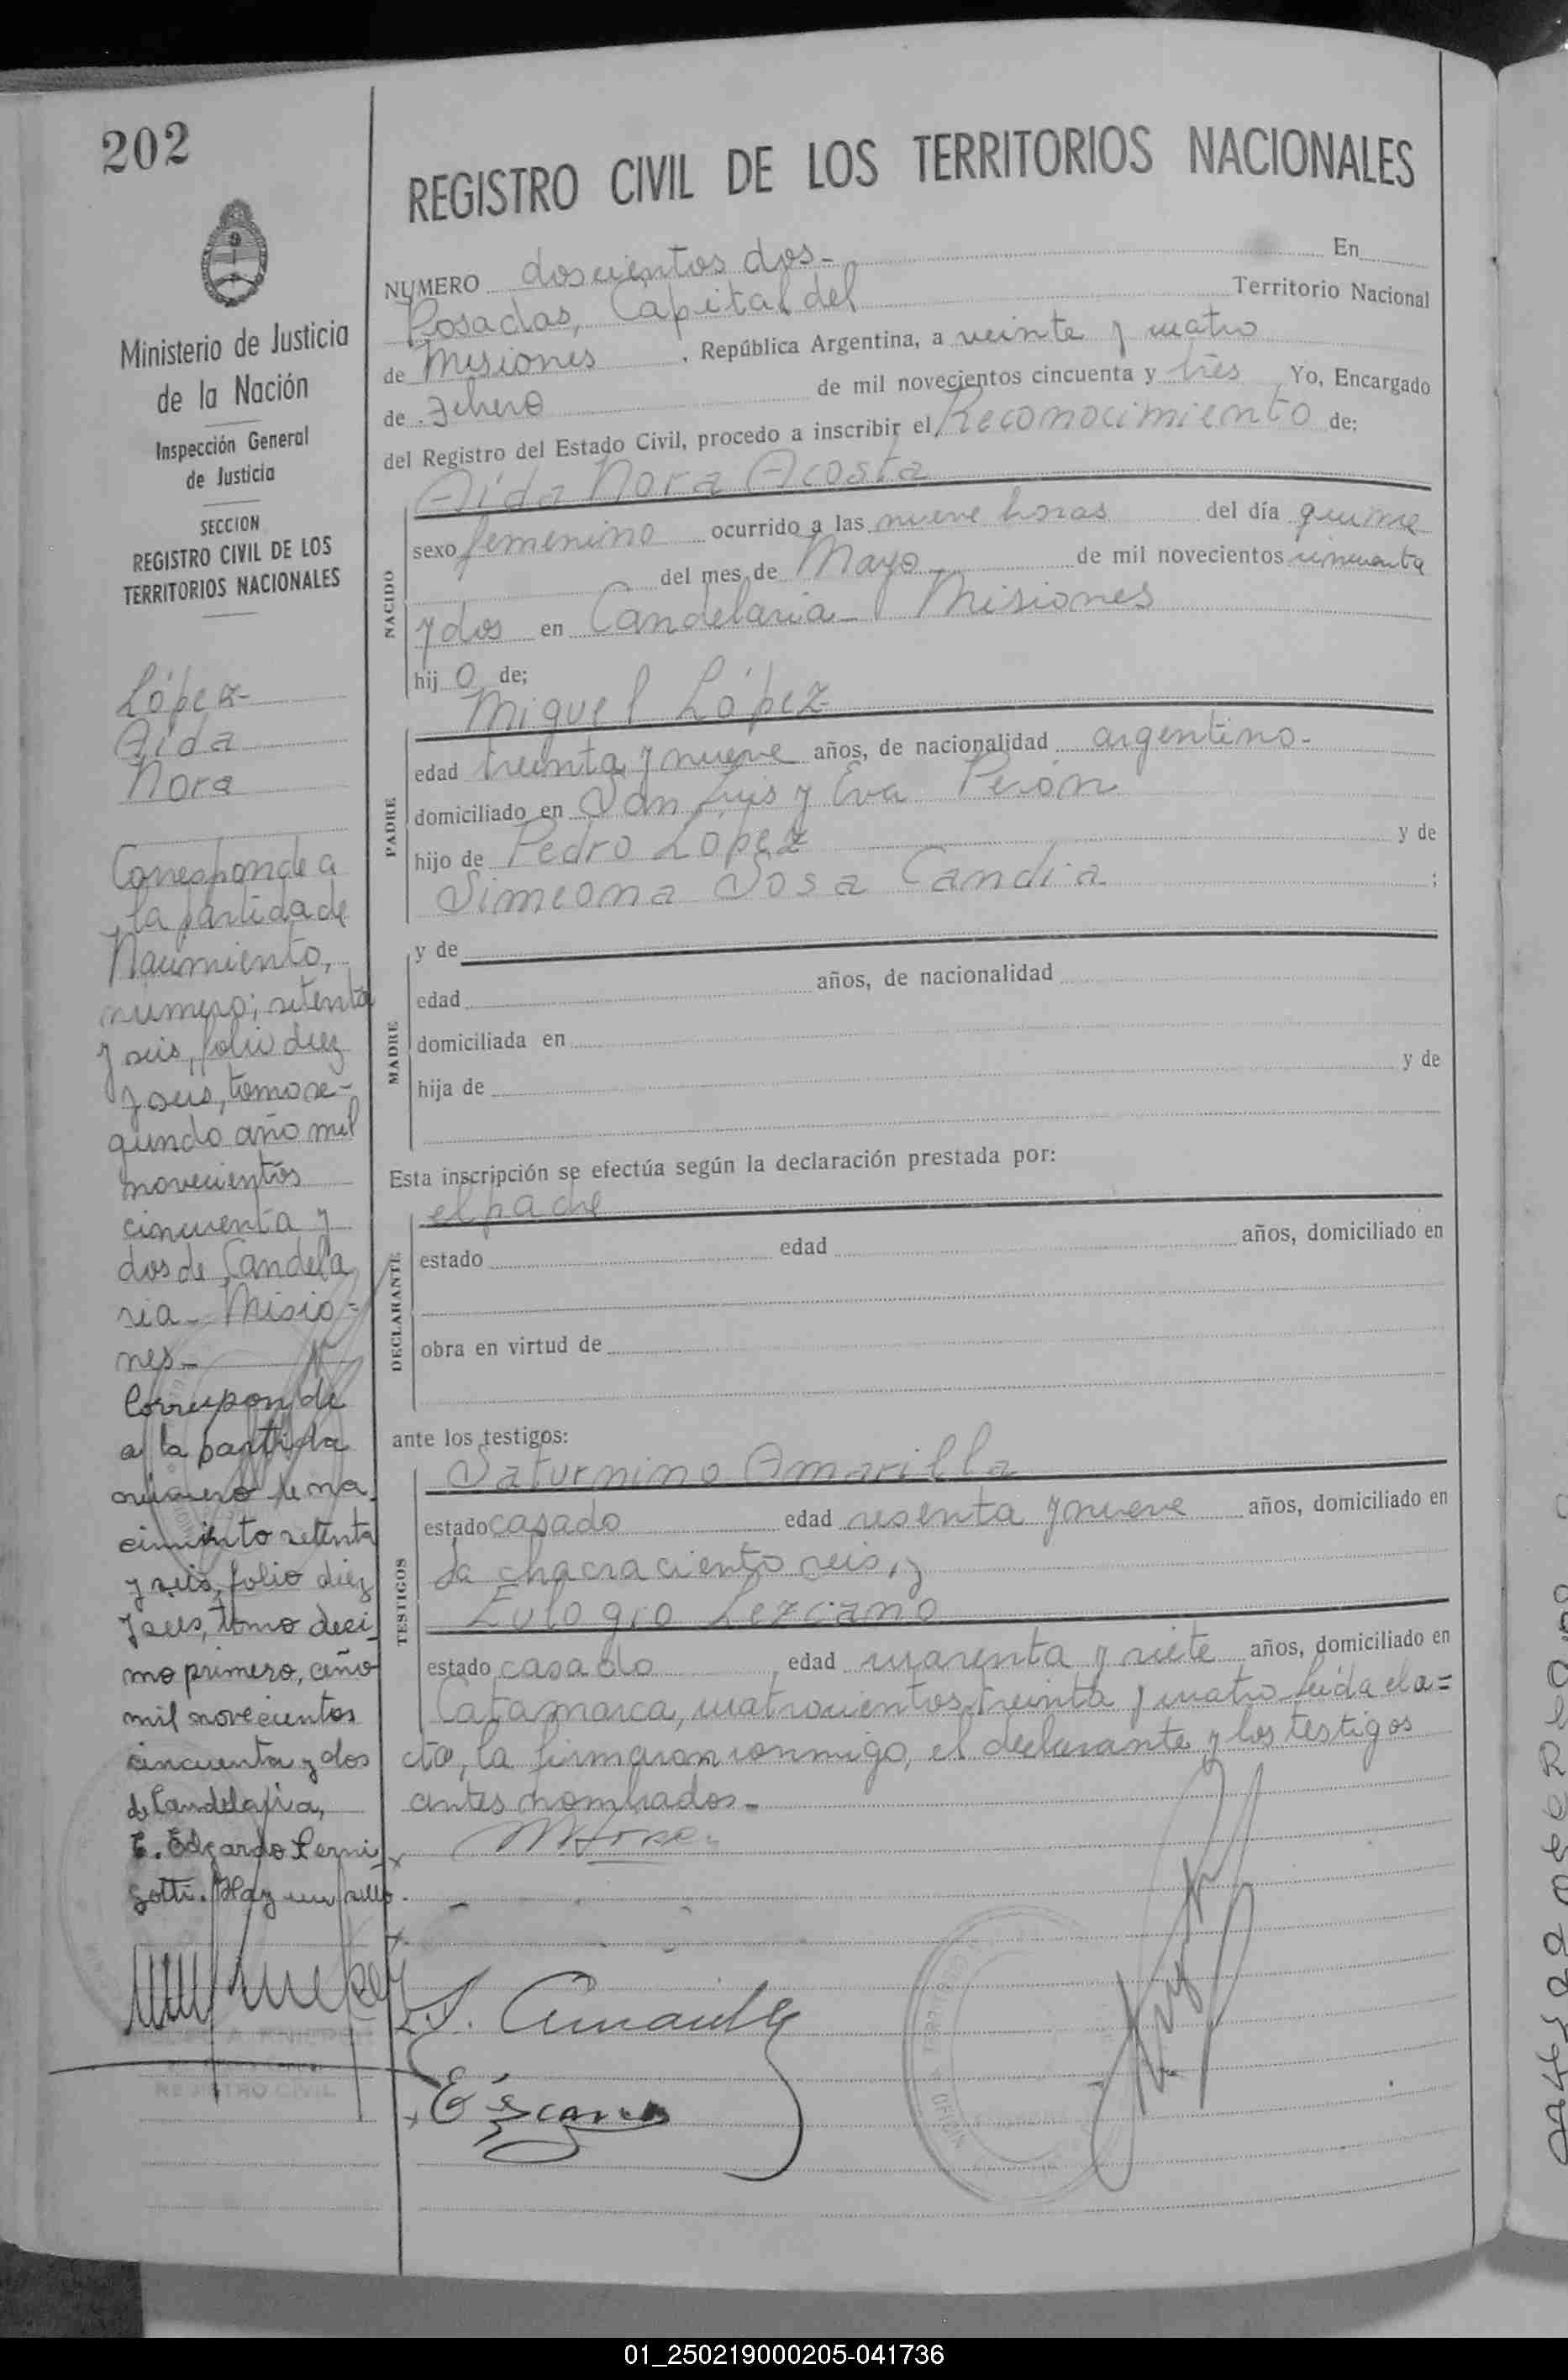 202
Ministerio de Justicia
de la Nación
Inspección General
de Justicia
SECCION
REGISTRO CIVIL DE LOS
TERRITORIOS NACIONALES
López
Aída
Nora
Corresponde a
la partida de
Nacimiento,
número; setenta
y seis, folio diez
y seis, tomo se-
gundo año mil
novecientos
cincuenta y
dos de Candela
ria - Misio=
nes -
Corresponde
a la partida
número de na
cimiento setenta
y seis, folio diez
y seis, tomo deci
mo primero, año
mil novecientos
cincuenta y dos
de Candelaria,
E. Edgardo Perni
gotti. Hay un sello.
REGISTRO CIVIL
REGISTRO CIVIL DE LOS TERRITORIOS NACIONALES
NUMERO doscientos dos - En
Posadas, Capital del Territorio Nacional
de Misiones, República Argentina, a veinte y cuatro
de Enero de mil novecientos cincuenta y tres Yo, Encargado
del Registro del Estado Civil, procedo a inscribir el Reconocimiento de:
Aída Nora Acosta
NACIDO
sexo femenino ocurrido a las nueve horas del día quince
del mes de Mayo de mil novecientos cincuenta
y dos en Candelaria - Misiones
hij o de;
Miguel López
PADRE
edad treinta y nueve años, de nacionalidad argentino -
domiciliado en San Luis y Eva Perón
hijo de Pedro López y de
Simeona Sosa Candia ;
MADRE
y de
edad años, de nacionalidad
domiciliada en
hija de y de
Esta inscripción se efectúa según la declaración prestada por:
el padre
DECLARANTE
estado edad años, domiciliado en
obra en virtud de
ante los testigos:
Saturnino Amarilla
TESTIGOS
estado casado edad sesenta y nueve años, domiciliado en
la chacra ciento seis, y
Eulogio Lezcano
estado casado edad cuarenta y siete años, domiciliado en
Catamarca, cuatrocientos treinta y cuatro Leída el a=
cta, la firmaron conmigo, el declarante y los testigos
antes nombrados -
S. Amarilla
01_250219000205-041736